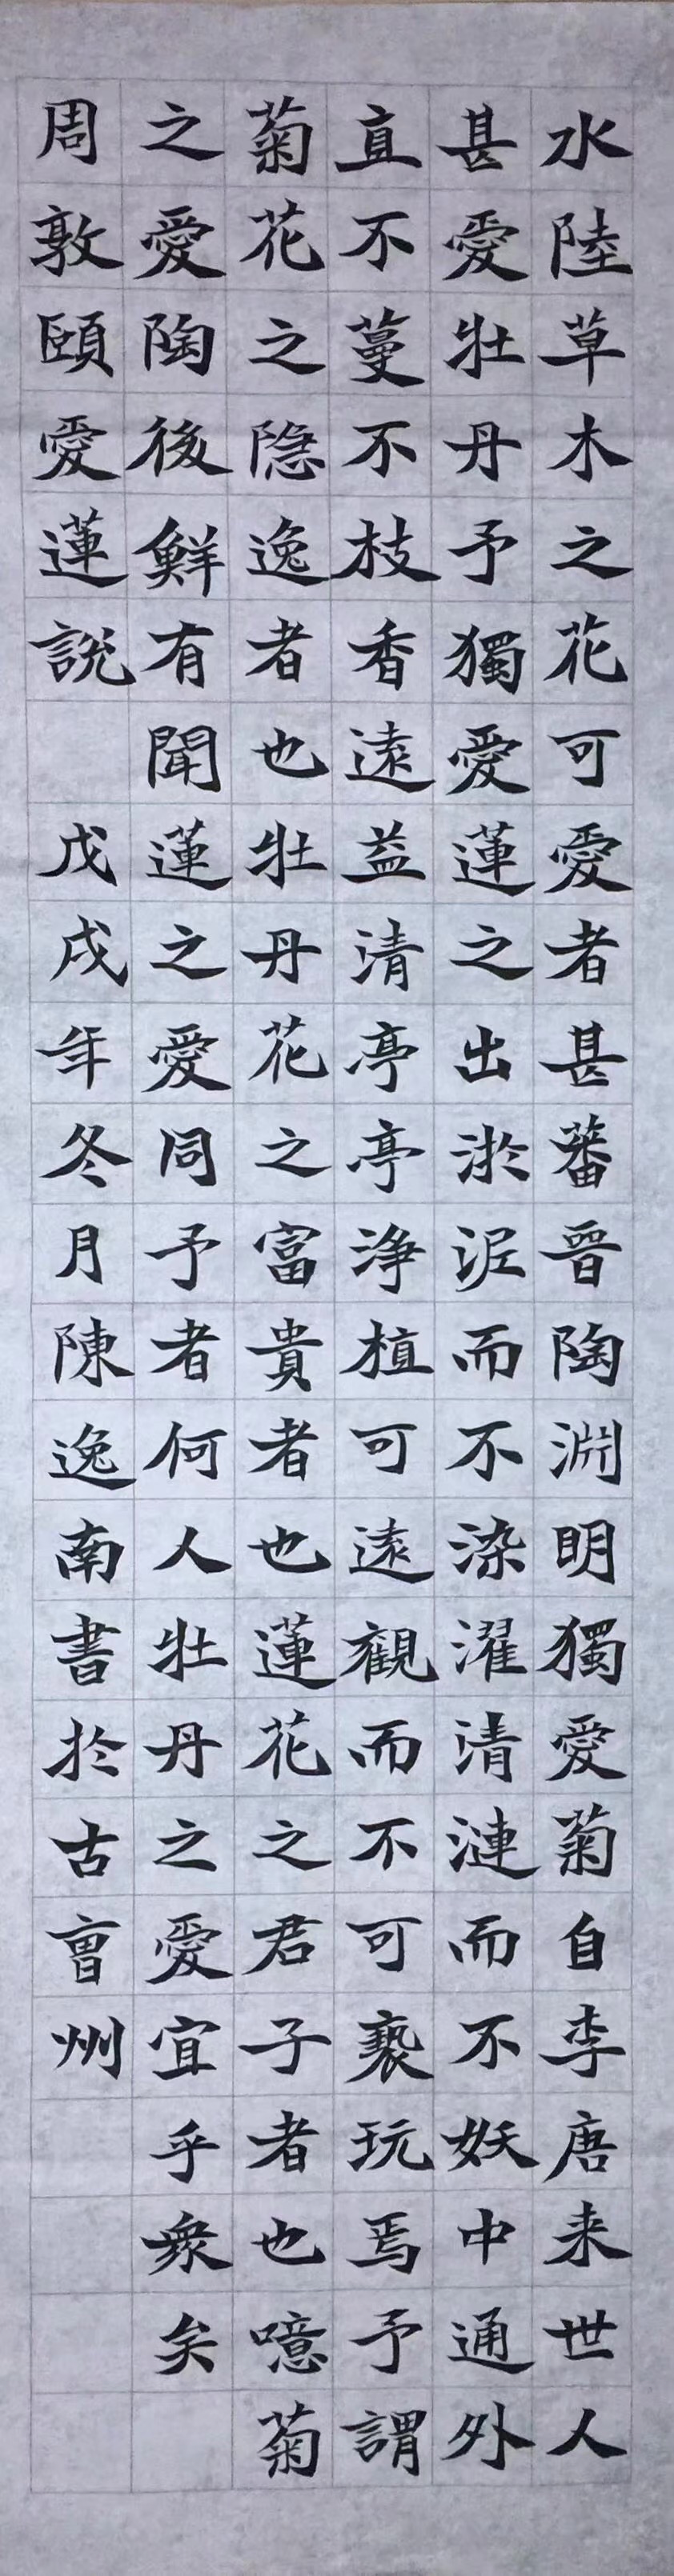 水陸草木之花可愛者甚蕃晉陶淵明獨愛菊自李唐来世人
甚愛牡丹予獨愛蓮之出淤泥而不染濯清漣而不妖中通外
直不蔓不枝香遠益清亭亭浄植可遠觀而不可褻玩焉予謂
菊花之隐逸者也牡丹花之富貴者也蓮花之君子者也噫菊
之愛陶後鮮有聞蓮之愛同予者何人牡丹之愛宜乎衆矣
周敦頤愛蓮説 戊戌年冬月陳逸南書於古曹州